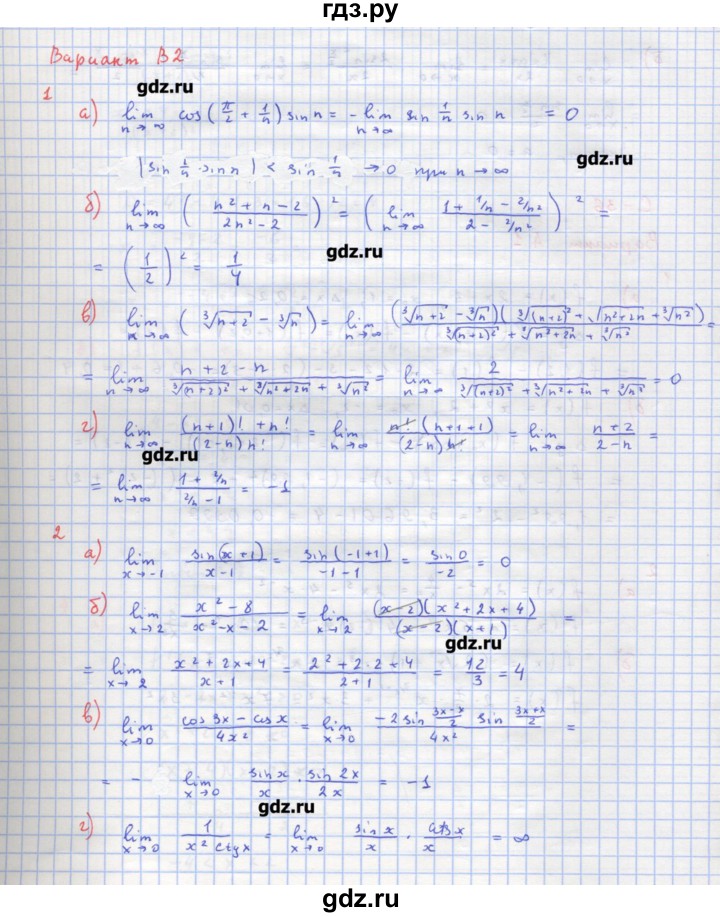 гдз.ру
Вариант В2
gdz.ru
1
а) lim n→∞ cos(π/2 + 1/n) sin n = - lim n→∞ sin 1/n sin n = 0
gdz.ru
|sin 1/n · sin n| < sin 1/n → 0 при n→∞
б) lim n→∞ ( (n² + n - 2)/(2n² - 2) )² = ( lim n→∞ (1 + 1/n - 2/n²)/(2 - 2/n²) )² =
gdz.ru
= (1/2)² = 1/4
в) lim n→∞ ( ∛(n+2) - ∛n ) = lim n→∞ (∛(n+2) - ∛n)( ∛(n+2)² + √(n²+2n) + ∛n² ) / ( ∛(n+2)² + ∛(n²+2n) + ∛n² ) =
gdz.ru
= lim n→∞ (n+2-n)/( ∛(n+2)² + ∛(n²+2n) + ∛n² ) = lim n→∞ 2/( ∛(n+2)² + ∛(n²+2n) + ∛n² ) = 0
г) lim n→∞ ((n+1)! + n!)/((2-n)n!) = lim n→∞ n!(n+1+1)/((2-n)n!) = lim n→∞ (n+2)/(2-n) =
gdz.ru
= lim n→∞ (1 + 2/n)/(2/n - 1) = -1
2
а) lim x→-1 sin(x+1)/(x-1) = sin(-1+1)/(-1-1) = sin0/-2 = 0
б) lim x→2 (x² - 8)/(x² - x - 2) = lim x→2 (x-2)(x²+2x+4)/((x-2)(x+1)) =
gdz.ru
= lim x→2 (x²+2x+4)/(x+1) = (2²+2·2+4)/(2+1) = 12/3 = 4
в) lim x→0 (cos3x - cosx)/4x² = lim x→0 (-2 sin (3x-x)/2 sin (3x+x)/2)/4x² =
gdz.ru
= - lim x→0 sinx/x · sin2x/2x = -1
gdz.ru
г) lim x→0 1/(x² ctgx) = lim x→0 sinx/x · /x = ∞
gdz.ru